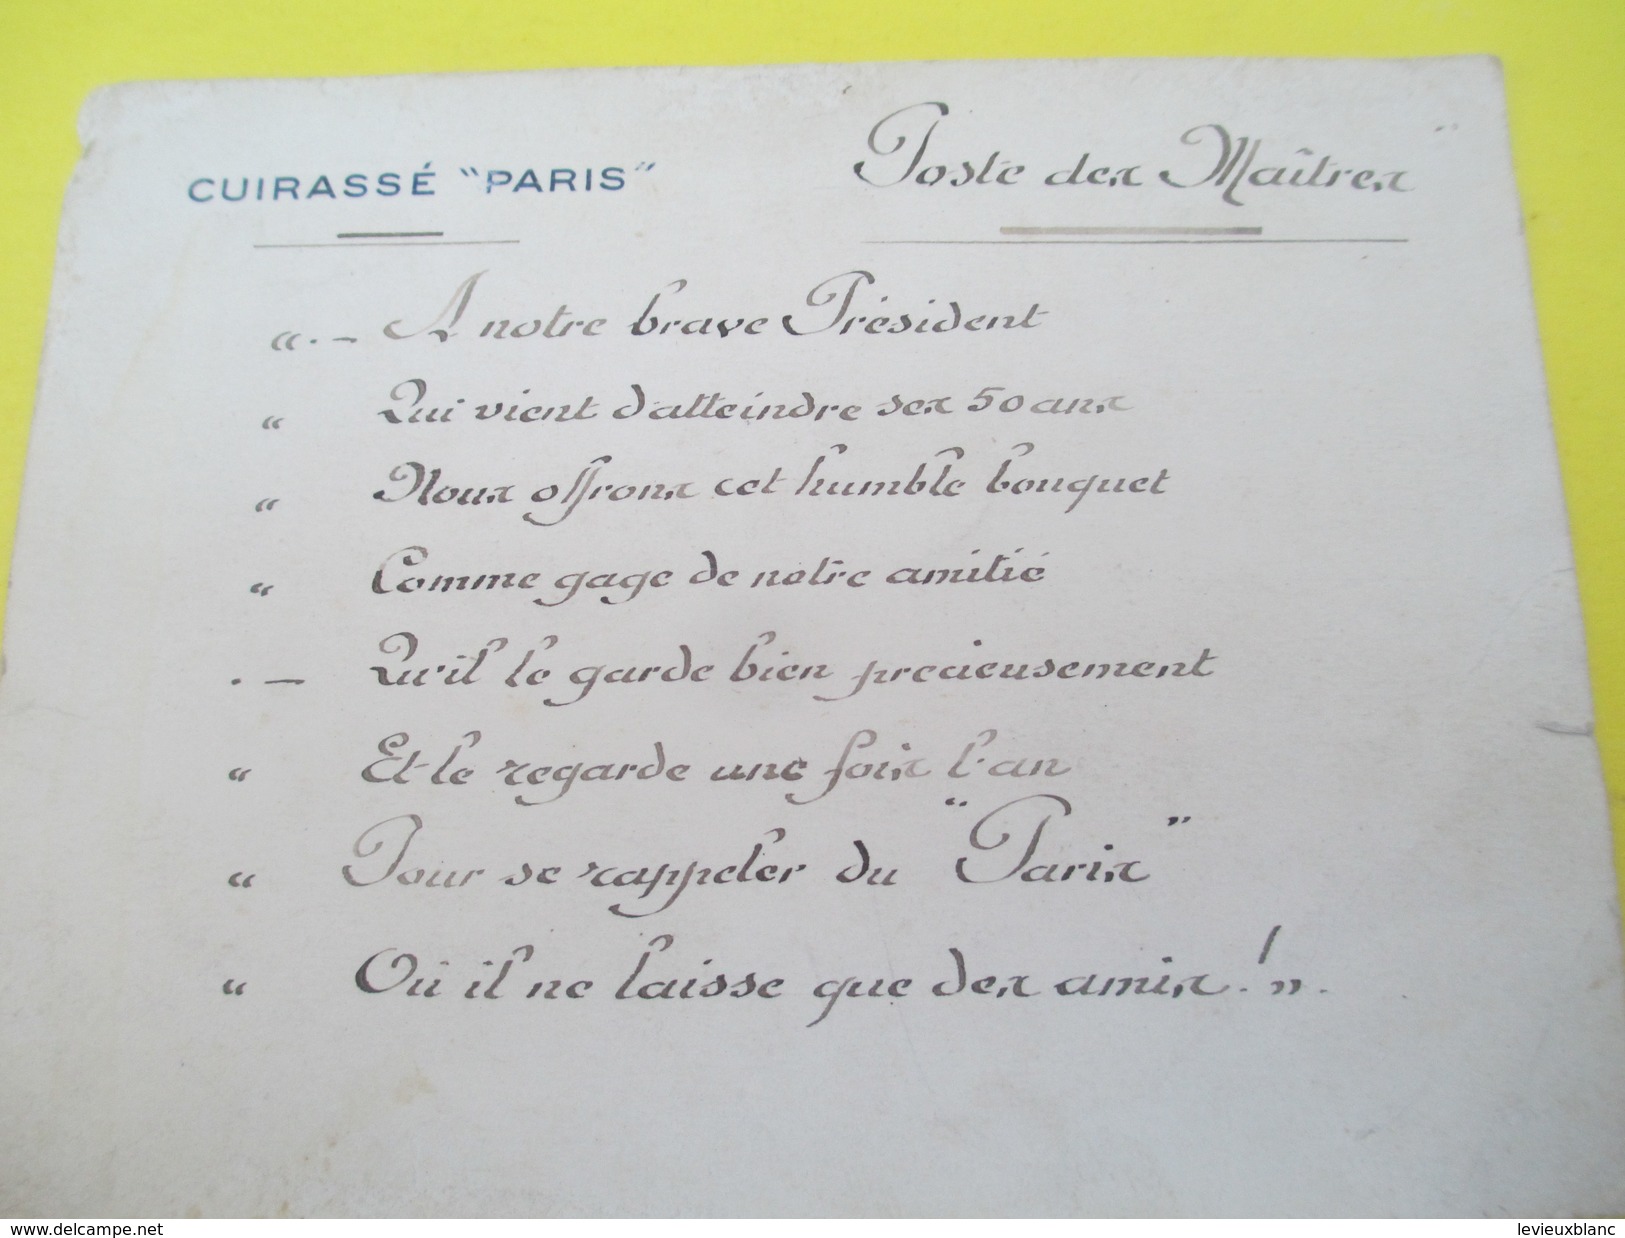 CUIRASSÉ "PARIS"
Poste des Maîtres
« . — A notre brave Président
« Qui vient d'atteindre ses 50 ans
« Nous offrons cet humble bouquet
« Comme gage de notre amitié
. — Qu'il le garde bien precieusement
« Et le regarde une fois l'an
« Pour se rappeler du "Paris"
« Où il ne laisse que des amis. ! ».
www.delcampe.net
levieuxblanc